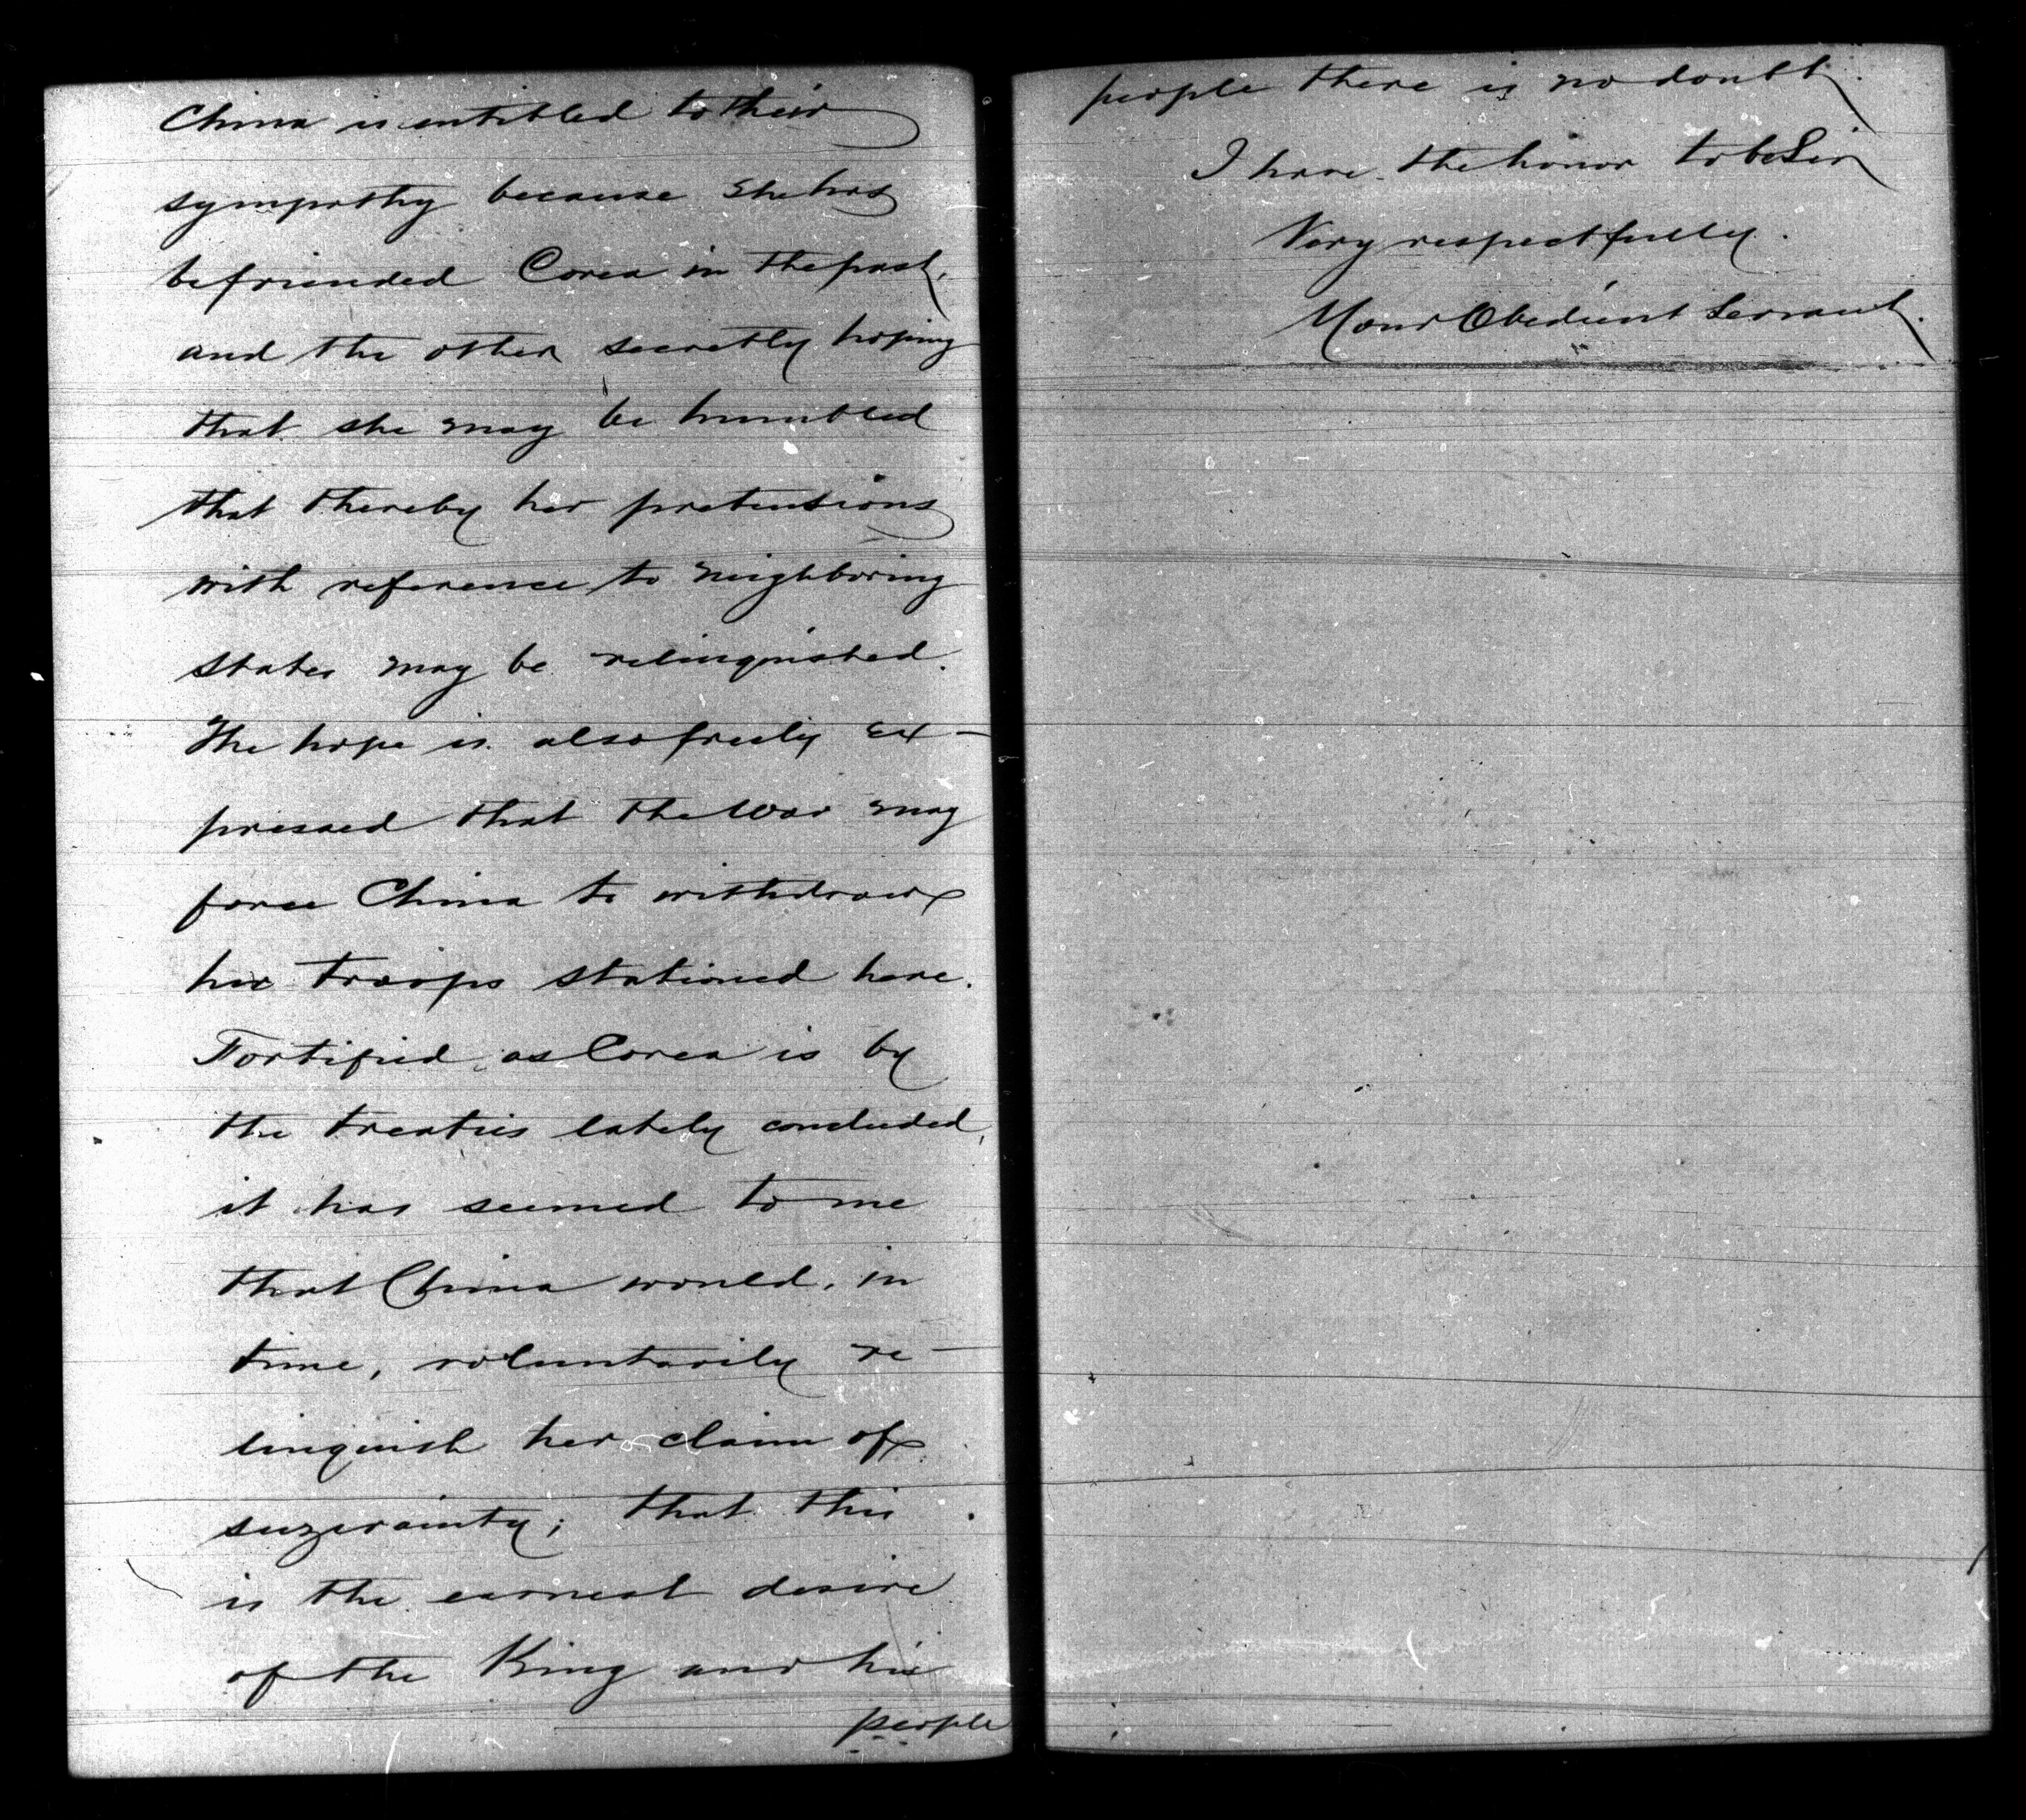 China is entitled to their
sympathy because she has
befriended Corea in the past,
and the other secretly hoping
that she may be humbled
that thereby her pretensions
with reference to neighboring
states may be relinquished.
The hope is also freely ex-
pressed that the war may
force China to withdraw
her troops stationed here.
Fortified, as Corea is by
the treaties lately concluded,
it has seemed to me
that China would, in
time, voluntarily re-
linquish her claim of
suzerainty; that this
is the earnest desire
of the King and his
people
people there is no doubt.
I have the honor to be Sir
Very respectfully.
Your Obedient Servant.